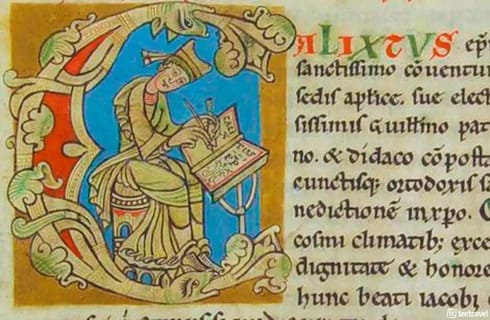 CALIXTVS ep
sanctissimo cōuentu
sedis aplice. sue elec
sissimis Guillmo pat
no. & didaco cōpost
cunctisq; ortodoxis s
nedictionē in xp̄o. C
cosmi climatib; exce
dignitate & honore
hunc beati iacobi